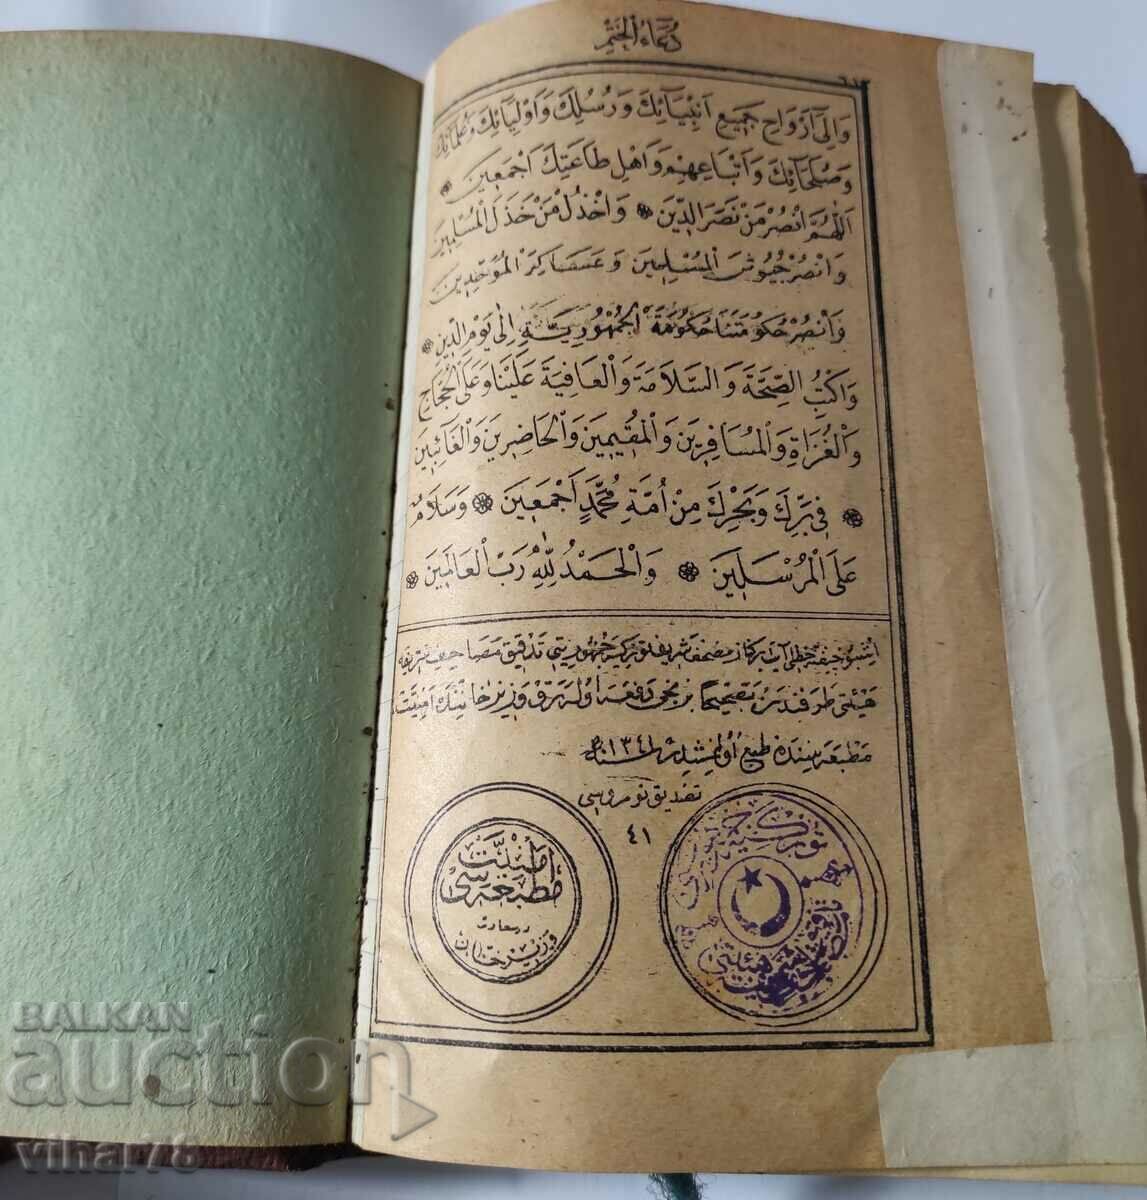 دُعَاءُ الْخَتْمِ
وَاِلٰى اَرْوَاحِ جَمِيعِ اَنْبِيَائِكَ وَرُسُلِكَ وَاَوْلِيَائِكَ وَعُلَمَائِكَ
وَصُلَحَائِكَ وَاَتْبَاعِهِمْ وَاَهْلِ طَاعَتِكَ اَجْمَعِينَ
اَللّٰهُمَّ انْصُرْ مَنْ نَصَرَ الدِّينَ وَاخْذُلْ مَنْ خَذَلَ الْمُسْلِمِينَ
وَانْصُرْ جُيُوشَ الْمُسْلِمِينَ وَعَسَاكِرَ الْمُوَحِّدِينَ
وَانْصُرْ حُكُومَتَنَا حُكُومَةَ الْجُمْهُورِيَّةِ اِلٰى يَوْمِ الدِّينِ
وَاكْتُبِ الصِّحَّةَ وَالسَّلَامَةَ وَالْعَافِيَةَ عَلَيْنَا وَعَلَى الْحُجَّاجِ
وَالْغُزَاةِ وَالْمُسَافِرِينَ وَالْمُقِيمِينَ وَالْحَاضِرِينَ وَالْغَائِبِينَ
فِى بَرِّكَ وَبَحْرِكَ مِنْ اُمَّةِ مُحَمَّدٍ اَجْمَعِينَ وَسَلَامٌ
عَلَى الْمُرْسَلِينَ وَالْحَمْدُ لِلّٰهِ رَبِّ الْعَالَمِينَ
اشبو خطلى آيت بركنار مصحف شريف توركيه جمهوريتى تدقيق مصاحف شريفه
هيئتى طرفندن بتصحيحا برنجى دفعه اوله رق وزيرخاننده امنيت
مطبعه سنده طبع اولنمشدر سنه ١٣٤١
تصديق نومروسى
٤١
امنيت
مطبعه سى
درسعادت
وزيرخان
توركيه
BALKAN
auction
vihar78